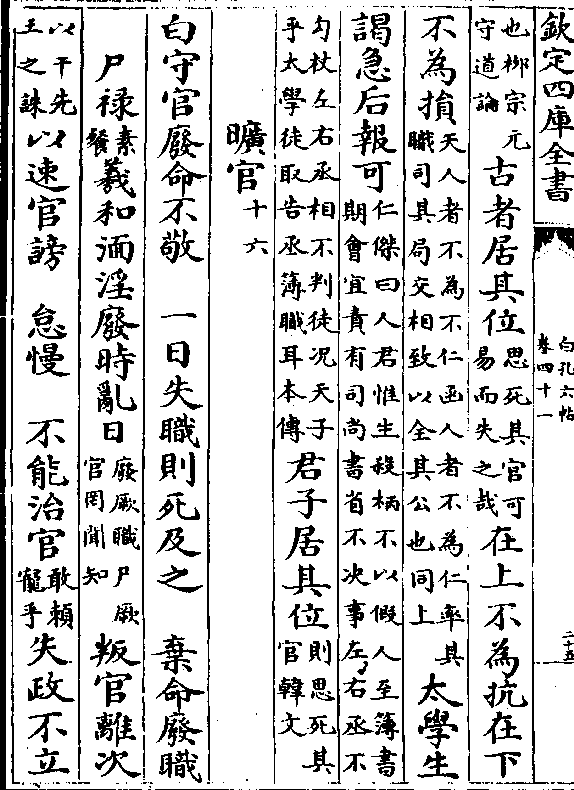 欽定四庫全書
白孔六帖
卷四十一
二十五
也栁宗元
守道論
古者居其位
思死其官可
易而失之哉
在上不為抗在下
不為損
天人者不為不仁函人者不為仁率其
職司其局交相致以全其公也同上
太學生
謁急后報可
仁傑曰人君惟生殺柄不以假人至簿書
期會宜責有司尚書省不决事左右丞不
勾杖左右丞相不判徒况天子
乎太學徒取告丞簿職耳本傳
君子居其位
則思死其
官韓文
曠官
十六
白守官廢命不敬　一日失職則死及之　棄命廢職
尸禄
素
餐
羲和湎淫廢時亂日
廢厥職尸厥
官罔聞知
叛官離次
以干先
王之誅
以速官謗　怠慢　不能治官
敢頼
寵乎
失政不立